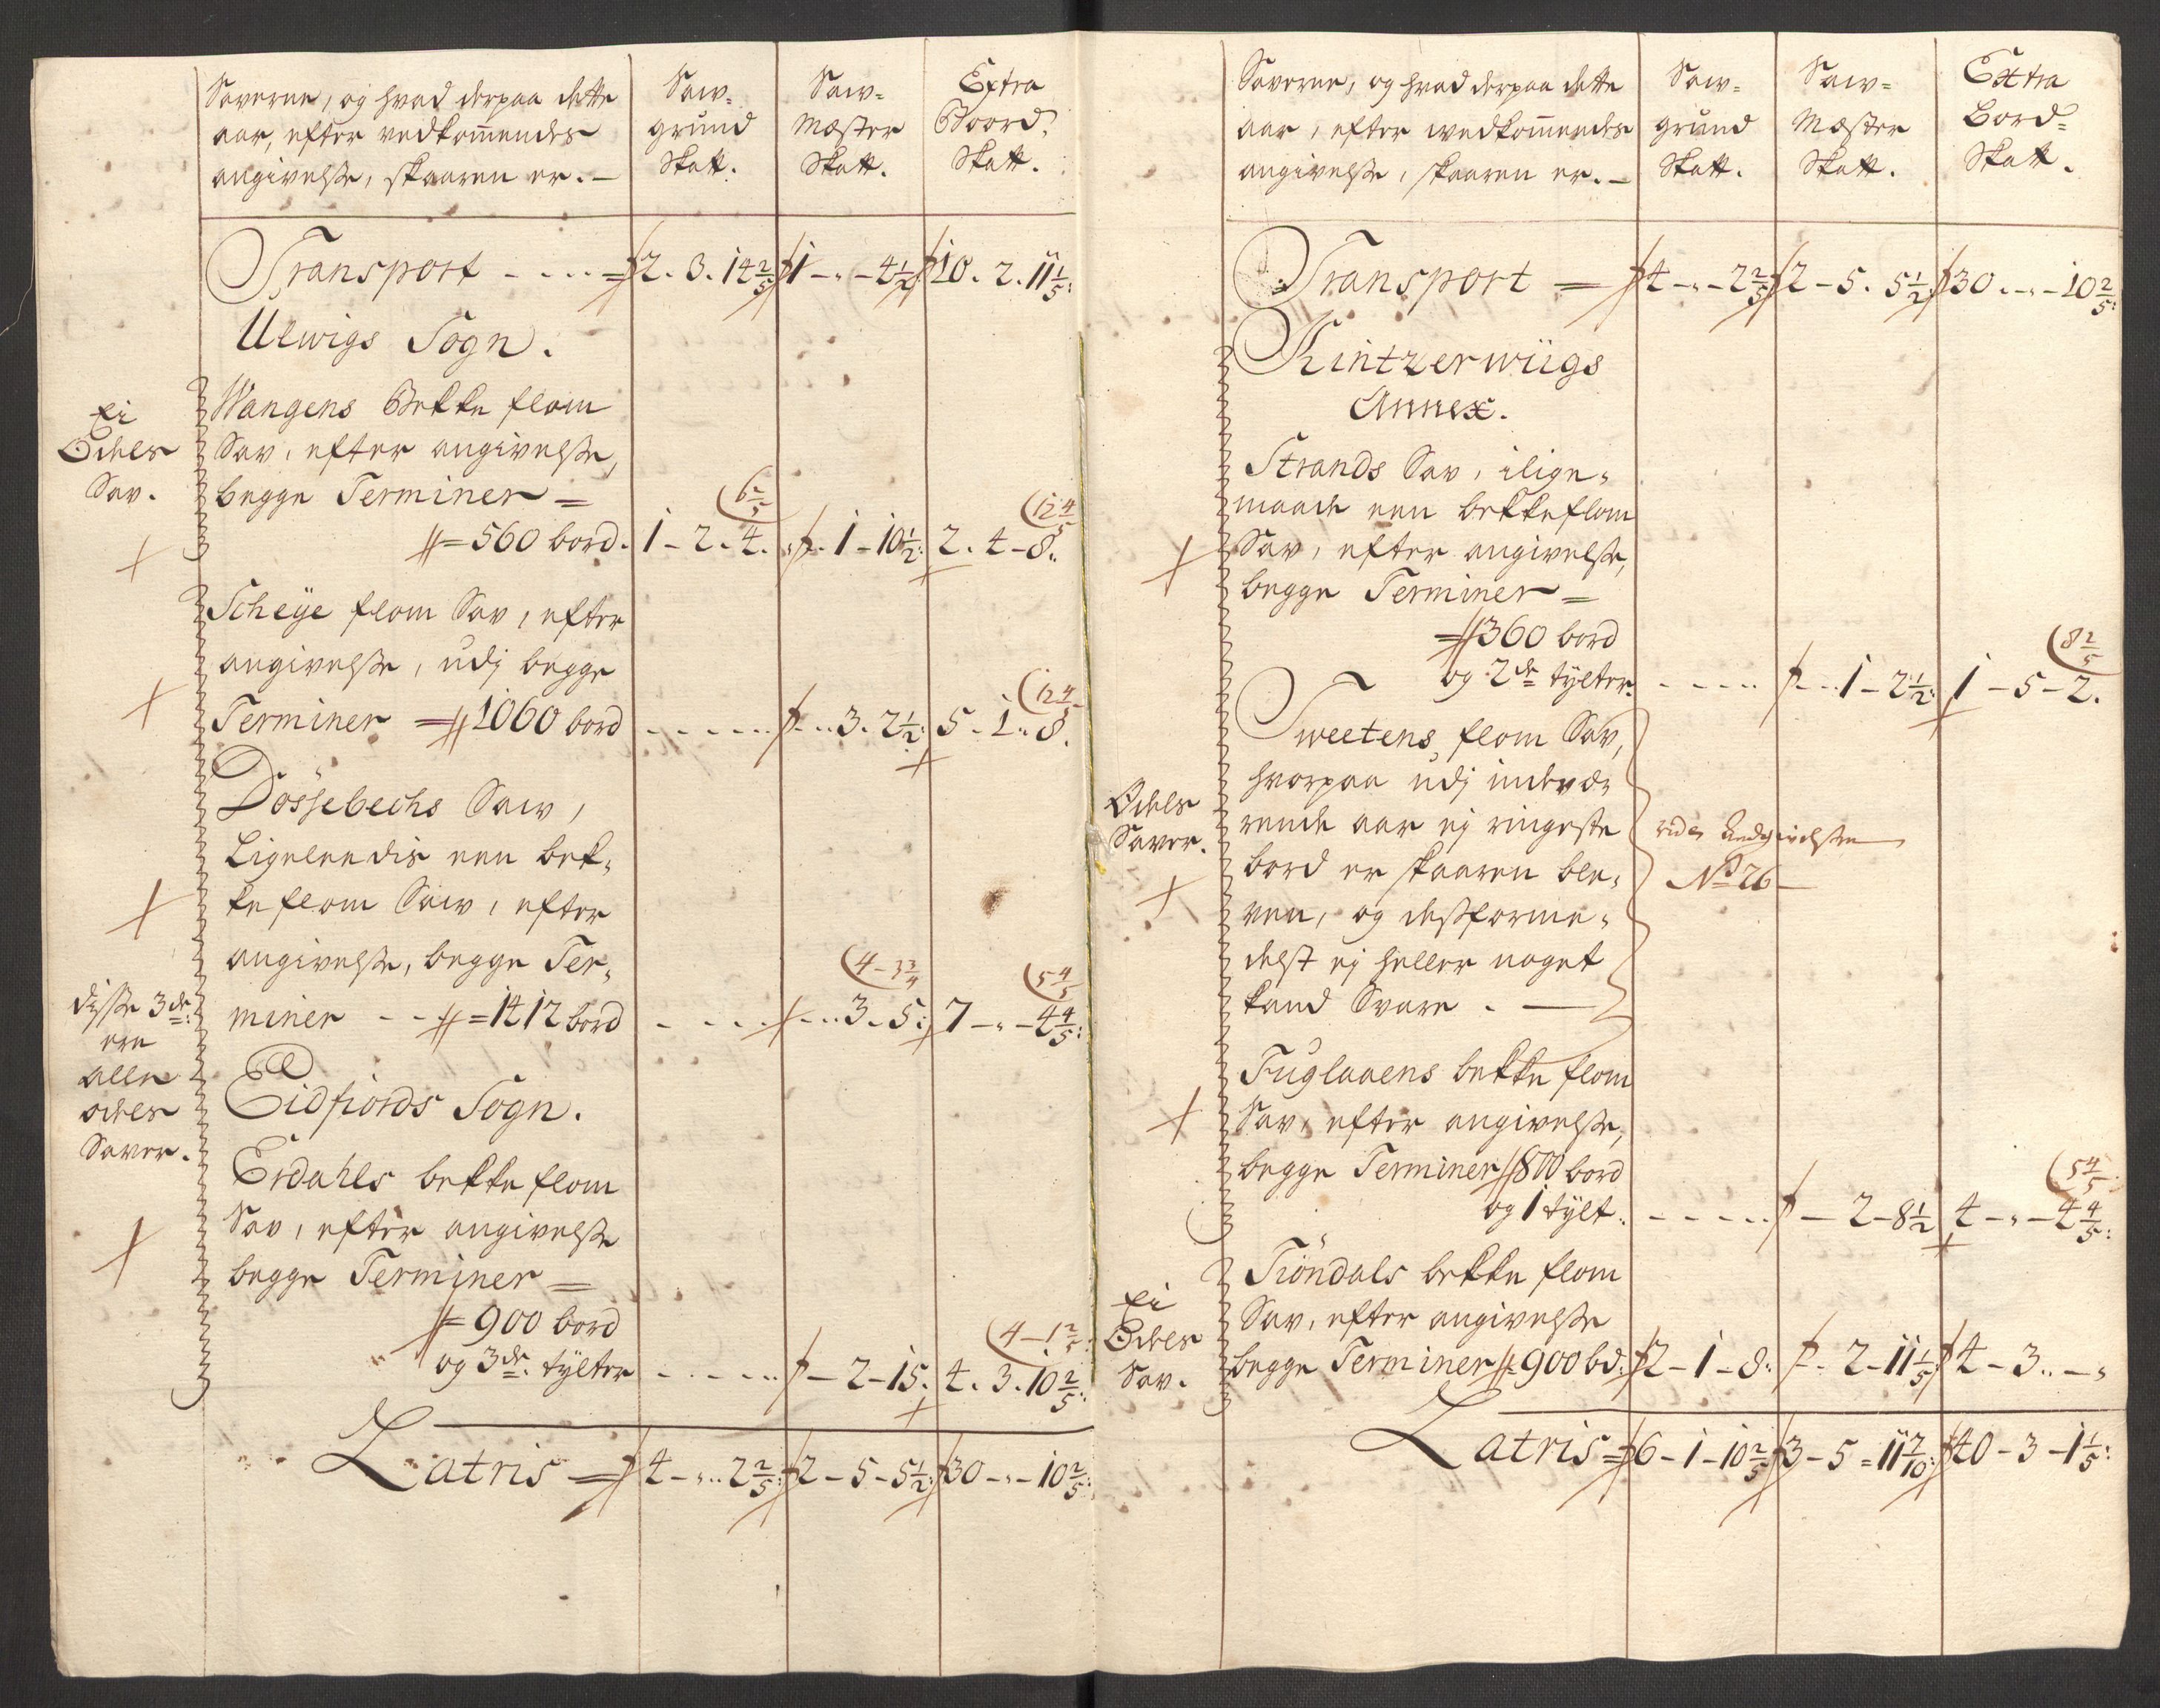 Saverne, og hvad derpaa dette
aar, efter vedkom̄endes
angivelsse, skaaren er. —
Saw-
grund
Skatt.
Saw-
Mæster
Skatt.
Extra
Boord
Skatt.
Transport - - - - = 2. 3. 14 2/5 1 - „ - 4 1/2 10. 2. 11 1/5:
Ulwigs Sogn.
Ei
Odels
Sav.
Wangens Bekke flom
Sav, efter angivelsse,
begge Terminer =
= 560 bord. 1 - 2. 4. (6 2/5 1 - 10 1/2: 2. 4 - 8. (12 4/5
Scheÿe flom Sav, efter
angivelsse, udj begge
Terminer = 1060 bord - - - - - - 3. 2 1/2: 5 - 1. 8. (12 4/5
Dössebechs Saw,
Ligeleedis een bek-
ke flom Saw, efter
angivelsse, begge Ter-
miner - - = 1412 bord - - - - - - 3 - 5: (4 - 3 3/4 7 - „ - 4 4/5: (5 4/5
disse 3de
ere
alle
odels
Saver.
Eidfiords Sogn.
Erdahls bekke flom
Sav, efter angivelsse
begge Terminer =
= 900 bord
og 3de tÿlter - - - - - - 2 - 15. 4. 3. 10 2/5: (4 - 1 2/5:
Latris = 4 - „ - 2 2/5: 2 - 5 - 5 1/2: 30 - „ - 10 2/5:
Saverne, og hvad derpaa dette
aar, efter wedkom̄endes
angivelsse, skaaren er. —
Saw-
grund
Skatt.
Saw-
Mæster
Skatt.
Extra
Bord-
Skatt.
Transport = 4 - „ - 2 2/5 2 - 5. 5 1/2: 30 - „ - 10 2/5:
Kintzerwiigs
Annex.
Strands Sav, ilige-
maade een bekkeflom
Sav, efter angivelsse,
begge Terminer =
= 360 bord
og 2de tÿlter. - - - - - - 1 - 2 1/2: 1 - 5 - 2. (8 2/5
Odels
Saver.
Tweetens flom Sav,
hvorpaa udj indevæ-
rende aar ej ringeste
bord er skaaren ble-
ven, og dessforme-
delst ej heller noget
kand Svare . —
No 26 —
Fuglaaens bekke flom
Sav, efter angivelsse,
begge Terminer 800 bord
og 1 tÿlt. - - - - - - 2 - 8 1/2 4 - „ - 4 4/5: (5 4/5
Ei
Odels
Sav.
Tiöndals bekke flom
Sav, efter angivelsse
begge Terminer 900 bd: 2 - 1 - 8: - 2 - 11 1/5 4 - 3 - „
Latris = 6 - 1 - 10 2/5 3 - 5 = 11 7/10: 40 - 3 - 1 1/5: